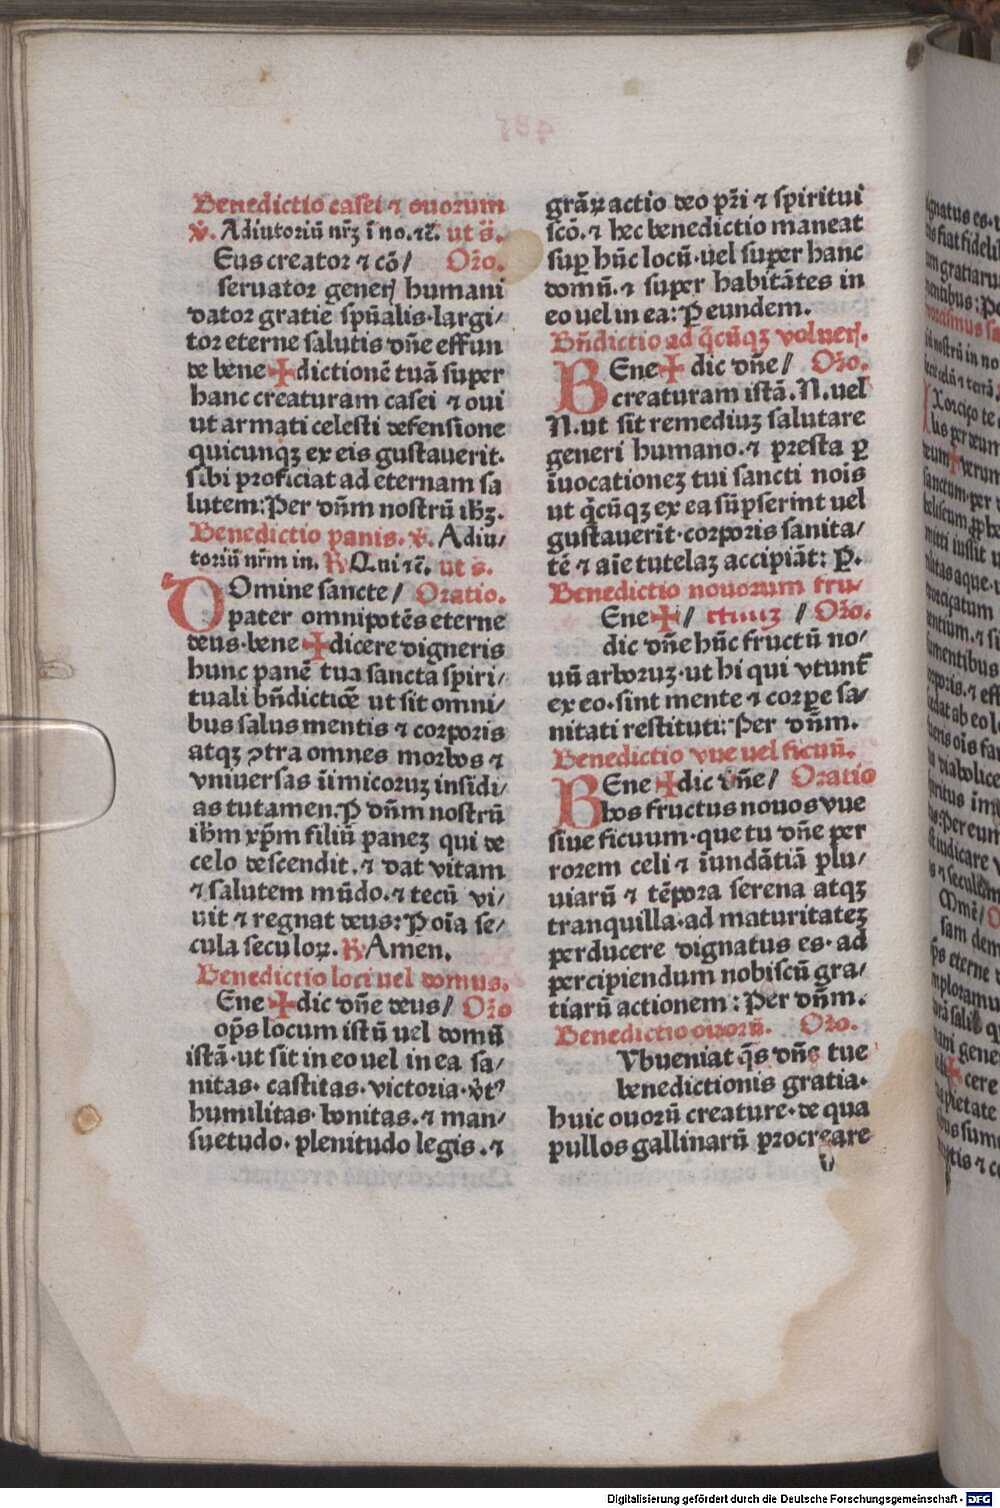 Benedictio casei ⁊ ouorum
℣. Adiutoriū nr̄ꝫ ī no. ⁊c̄. ut s̄.
Eus creator ⁊ cō/ Or̄o.
seruator generꝭ humani
dator gratie spūalis·largi/
tor eterne salutis dn̄e effun
de bene ✠ dictionē tuā super
hanc creaturam casei ⁊ oui
ut armati celesti defensione
quicunqꝫ ex eis gustauerit·
sibi proficiat ad eternam sa
lutem: Per dn̄m nostrū ihꝫ.
Benedictio panis. ℣. Adiu/
toriū nr̄m in. ℟ Qui ⁊c̄. ut s.
DOmine sancte/ Oratio.
pater omnipotēs eterne
deus·bene ✠ dicere digneris
hunc panē tua sancta spiri/
tuali bn̄dictiōe ut sit omni/
bus salus mentis ⁊ corporis
atqꝫ ꝯtra omnes morbos ⁊
vniuersas īimicoruꝫ insidi/
as tutamen. P dn̄m nostrū
ihm̄ xp̄m filiū paneꝫ qui de
celo descendit. ⁊ dat vitam
⁊ salutem mūdo. ⁊ tecū vi/
uit ⁊ regnat deus: P oīa se/
cula seculoꝝ. ℟ Amen.
Benedictio loci uel domus.
Ene ✠ dic dn̄e deus/ Or̄o
op̄s locum istū uel domū
istā·ut sit in eo uel in ea sa/
nitas· castitas· victoria·v̄tꝰ
humilitas· bonitas. ⁊ man/
suetudo· plenitudo legis. ⁊
grāꝝ actio deo pr̄i ⁊ spiritui
scō. ⁊ hec benedictio maneat
suꝑ hūc locū·uel super hanc
domū. ⁊ super habitātes in
eo uel in ea: P eundem.
Bn̄dictio ad q̄cūqꝫ voluerꝭ.
BEne ✠ dic dn̄e/ Or̄o.
creaturam istā. N. uel
N. ut sit remediuꝫ salutare
generi humano. ⁊ presta ꝑ
īuocationeꝫ tui sancti nōis
ut q̄cūqꝫ ex ea sūpserint uel
gustauerit·corporis sanita/
tē ⁊ aīe tutelaꝫ accipiāt: P.
Benedictio nouorum fru/
Ene ✠ / ctuuꝫ / Or̄o.
dic dn̄e hūc fructū no/
uū arboruꝫ·ut hi qui vtunt̄
ex eo·sint mente ⁊ corꝑe sa/
nitati restituti: Per dn̄m.
Benedictio vue uel ficuū.
BEne ✠ dic dn̄e/ Oratio
hos fructus nouos vue
siue ficuum·que tu dn̄e per
rorem celi ⁊ īundātiā plu/
uiarū ⁊ tēpora serena atqꝫ
tranquilla·ad maturitateꝫ
perducere dignatus es·ad
percipiendum nobiscū gra/
tiarū actionem: Per dn̄m.
Benedictio ouorū. Or̄o.
Vbueniat q̄s dn̄e tue
benedictionis gratia·
huic ouorū creature·de qua
pullos gallinarū procreare
Digitalisierung gefördert durch die Deutsche Forschungsgemeinschaft - DFG